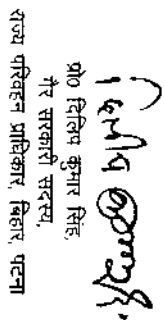 दिलीप कुमार
प्रो० दिलिप कुमार सिंह,
गैर सरकारी सदस्य,
राज्य परिवहन प्राधिकार, बिहार, पटना